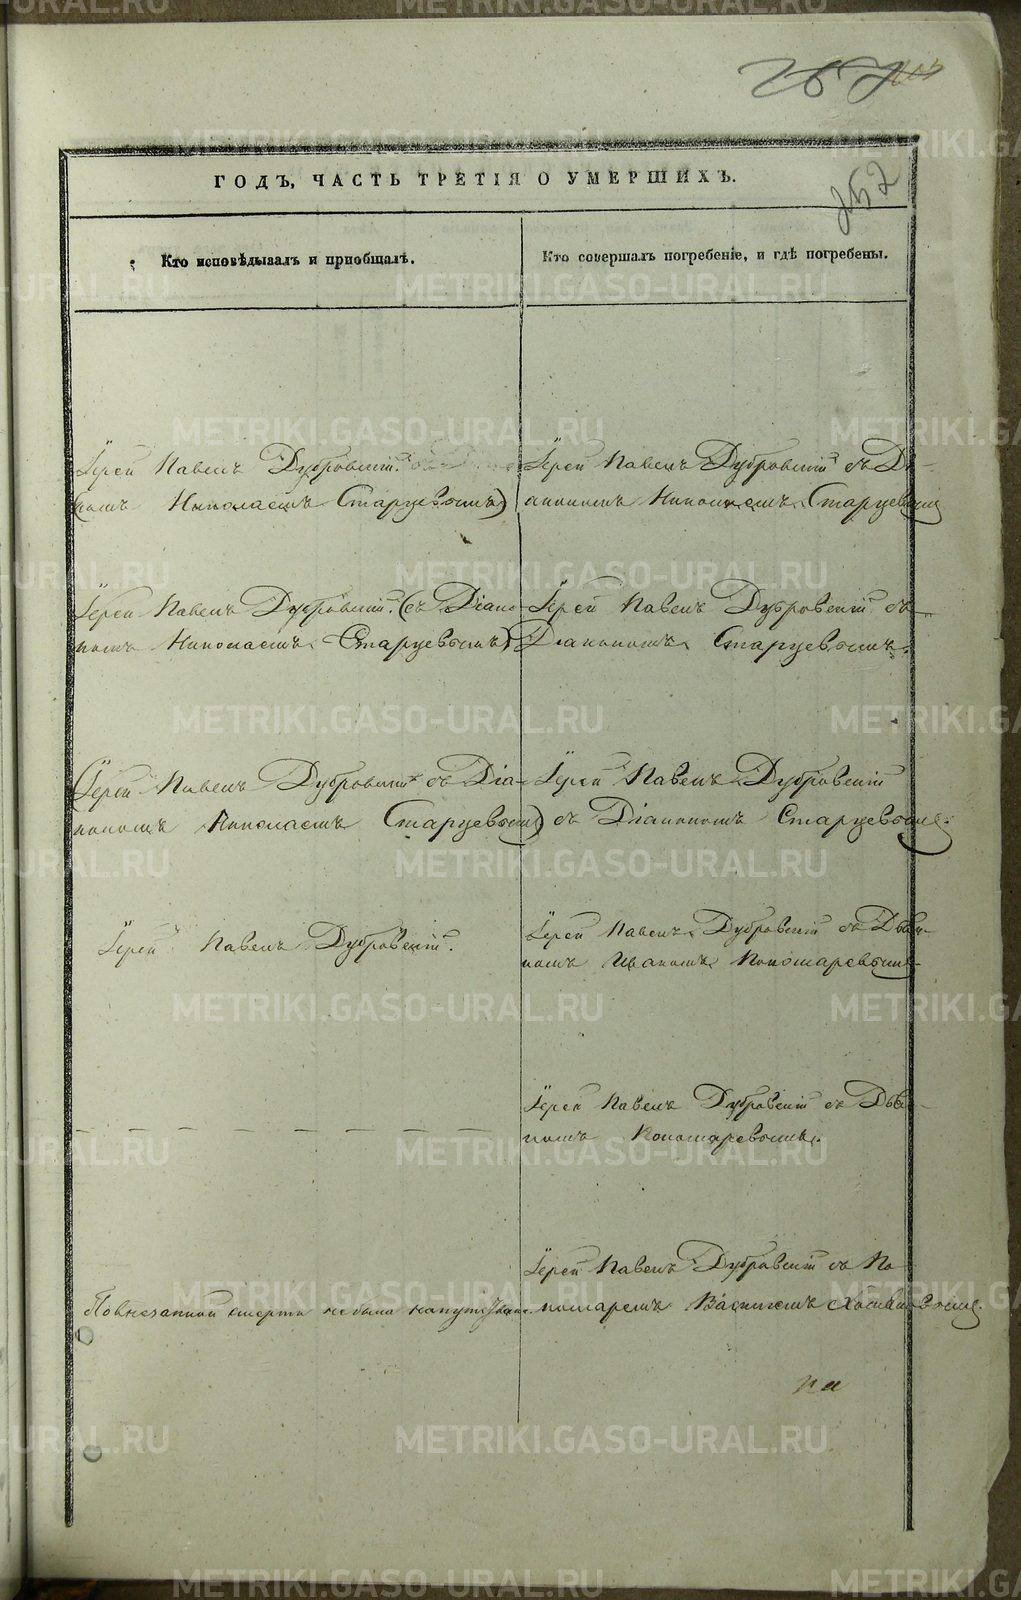 267
252
ГОДЪ, ЧАСТЬ ТРЕТІЯ О УМЕРШИХЪ.
Кто исповѣдывалъ и пріобщалъ.
Кто совершалъ погребеніе, и гдѣ погребены.
Іерей Павелъ Дубровскій.
(номъ Николаемъ Старцевымъ)
Іерей Павелъ Дубровскій съ Ді-
акономъ Николаемъ Старцевымъ
Іерей Павелъ Дубровскій. (съ Діако-
номъ Николаемъ Старцевымъ)
Іерей Павелъ Дубровскій съ
Діакономъ Старцевымъ.
(Іерей Павелъ Дубровскій съ Діа-
кономъ Николаемъ Старцевымъ)
Іерей Павелъ Дубровскій
съ Діакономъ Старцевымъ.
Іерей Павелъ Дубровскій.
Іерей Павелъ Дубровскій съ Дьяч-
комъ Иваномъ Пономаревымъ
Іерей Павелъ Дубровскій съ Дьяч-
комъ Пономаревымъ.
Іерей Павелъ Дубровскій съ По
номаремъ Василіемъ
По внезапной смерти не была напутствована
METRIKI.GASO-URAL.RU